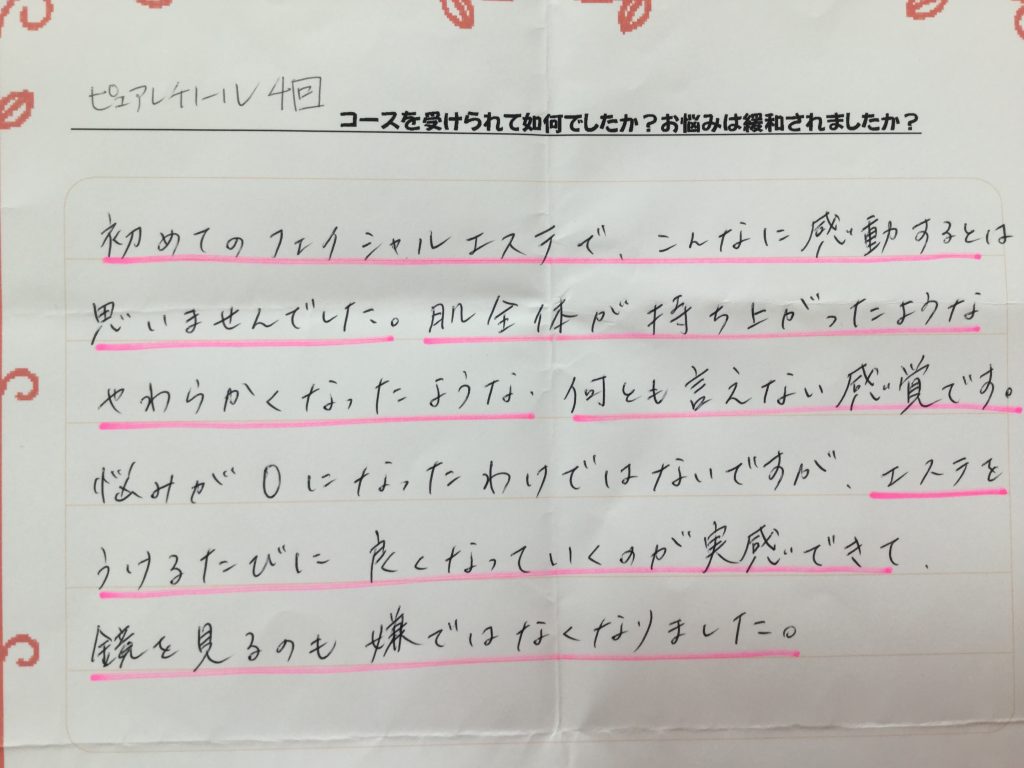 ピュアレナトール 4回
コースを受けられて如何でしたか？お悩みは緩和されましたか？
初めてのフェイシャルエステで、こんなに感動するとは
思いませんでした。肌全体が持ち上がったような
やわらかくなったような、何とも言えない感覚です。
悩みが0になったわけではないですが、エステを
うけるたびに良くなっていくのが実感できて、
鏡を見るのも嫌ではなくなりました。